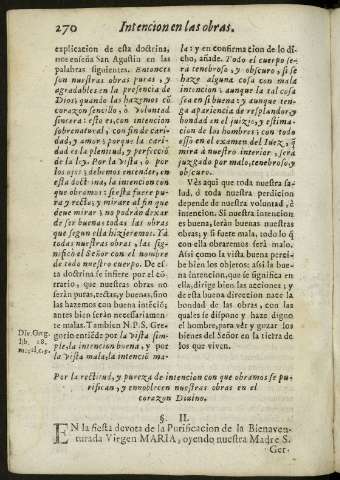 270 Intencion en las obras.
explicacion de esta doctrina,
nos enseña San Agustin en las
palabras siguientes. Entonces
son nuestras obras puras, y
agradables en la presencia de
Dios; quando las hazemos cõ
corazon sencillo, ò voluntad
sincera: esto es, con intencion
sobrenatural, con fin de cari-
dad, y amor; porque la cari-
dad es la plenitud, y perfecciõ
de la ley. Por la vista, ò por
los ojos; debemos entender, en
esta doctrina, la intencion con
que obramos: si esta fuere pu-
ra y recta; y mirare al fin que
deve mirar; no podràn dexar
de ser buenas todas las obras
que segun ella hizieremos. Tã
todas nuestras obras, las sig-
nificò el Señor con el nombre
de todo nuestro cuerpo. De es-
ta doctrina se infiere por el cõ-
trario, que nuestras obras no
seràn puras, rectas, y buenas, sino
las hazemos con buena intẽciõ;
antes bien seràn necessariamen-
te malas. Tambien N. P. S. Gre-
gorio entiẽde por la vista sim-
ple, la intencion buena, y por
la vista mala, la intenciõ ma-
Div. Greg.
lib. 28.
la: y en confirmacion de lo di-
cho, añade. Todo el cuerpo se-
ra tenebroso, y obscuro, si se
haze alguna cosa con mala
intencion; aunque la tal cosa
sea en si buena: y aunque ten-
ga apariencia de resplandor y
bondad en el juizio, y estima-
cion de los hombres; con todo
esso en el examen del Iuez, q̃
mira à nuestro interior, serà
juzgado por malo, tenebroso, y
obscuro.
Vès aqui que toda nuestra sa-
lud, ò toda nuestra perdicion
depende de nuestra voluntad, è
intencion. Si nuestra intencion
es buena, seràn buenas nuestras
obras; y si fuere mala, todo lo q̃
con ella obraremos serà malo.
Assi como la vista buena perci-
be bien los objetos: assi la bue-
na intencion, que se significa en
ella, dirige bien las acciones; y
de esta buena direccion nace la
bondad de las obras, con las
quales se dispone y haze digno
el hombre, para vèr y gozar los
bienes del Señor en la tierra de
los que viven.
Por la rectitud, y pureza de intencion con que obramos se pu-
rifican, y ennoblecen nuestras obras en el
corazon Divino.
§. II.
EN la fiesta devota de la Purificacion de la Bienaven-
turada Virgen MARIA, oyendo nuestra Madre S.
Ger-